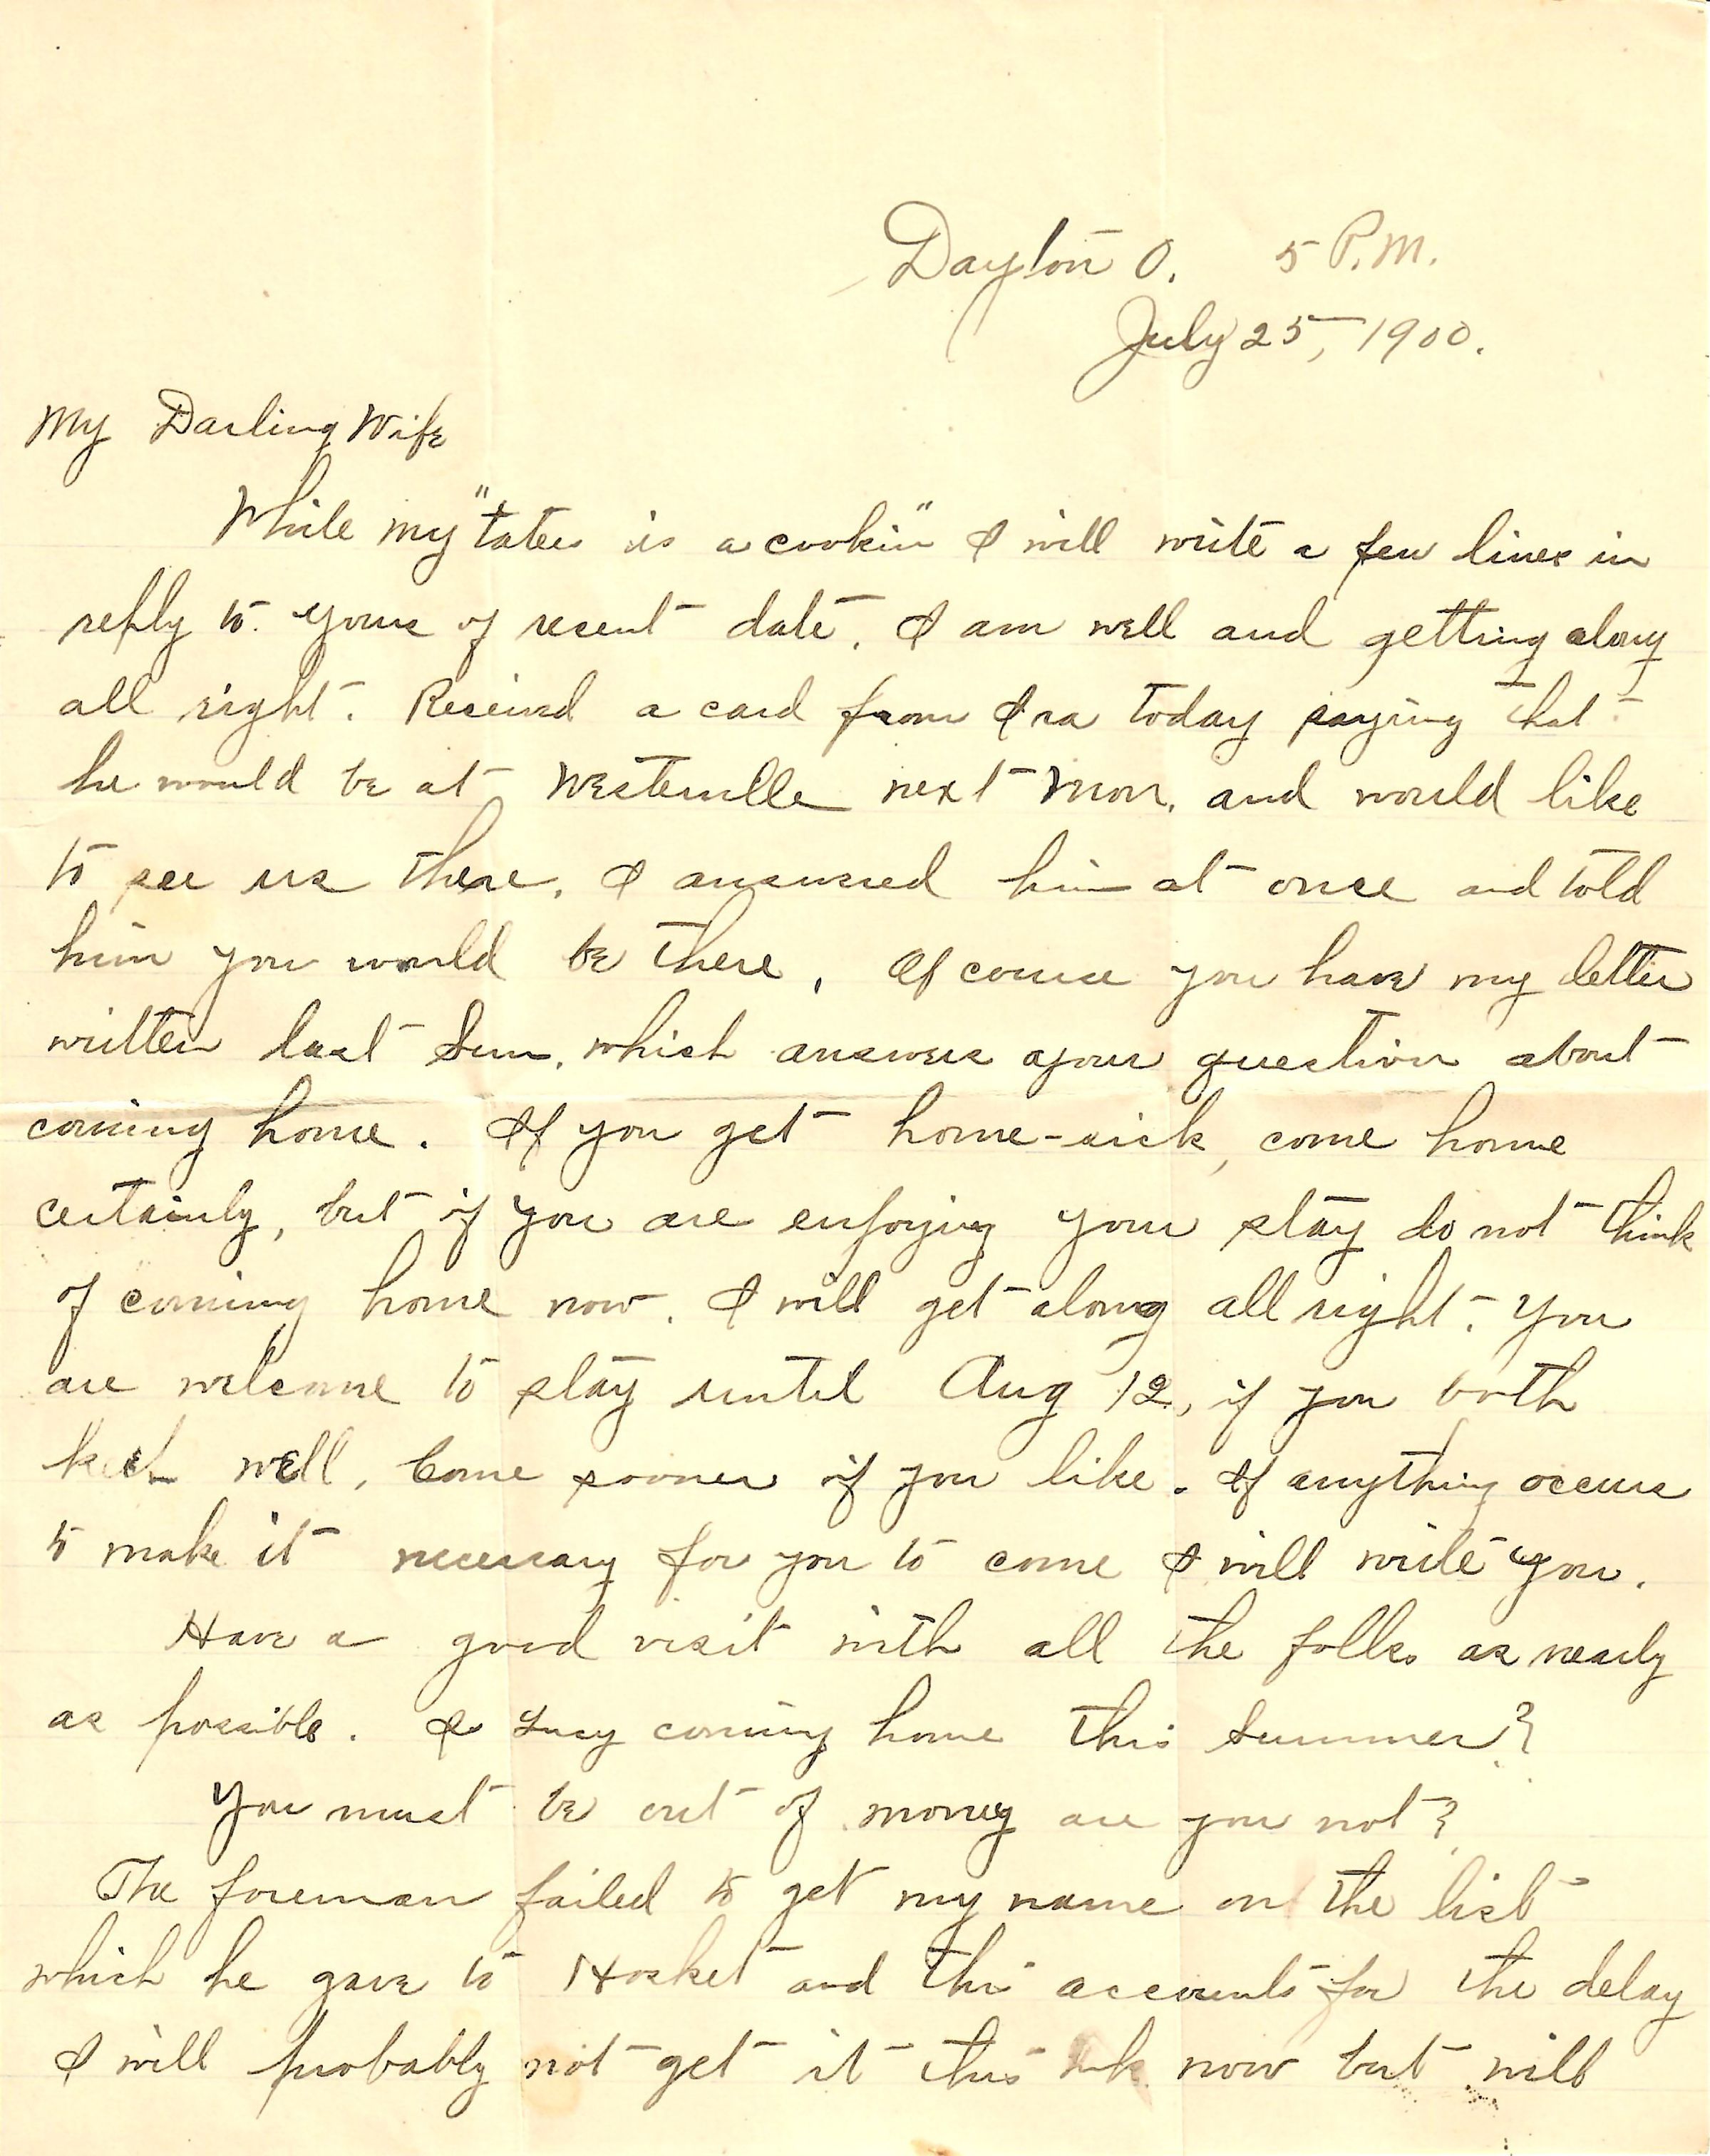 Dayton O. 5 P.M.
July 25, 1900.
My Darling Wife
While my "taters is a cookin" I will write a few lines in
reply to yours of recent date. I am well and getting along
all right. Received a card from Ira today saying that
he would be at Westerville next Mon. and would like
to see us there. I answered him at once and told
him you would be there. Of course you have my letter
written last Sun. which answers your question about
coming home. If you get home-sick, come home
certainly, but if you are enjoying your stay do not think
of coming home now. I will get along all right. You
are welcome to stay until Aug 12, if you both
keep well. Come sooner if you like. If anything occurs
to make it necessary for you to come I will write you.
Have a good visit with all the folks as nearly
as possible. Is Lucy coming home this summer?
You must be out of money are you not?
The foreman failed to get my name on the list
which he gave to Hosket and this accounts for the delay
I will probably not get it this wk. now but will